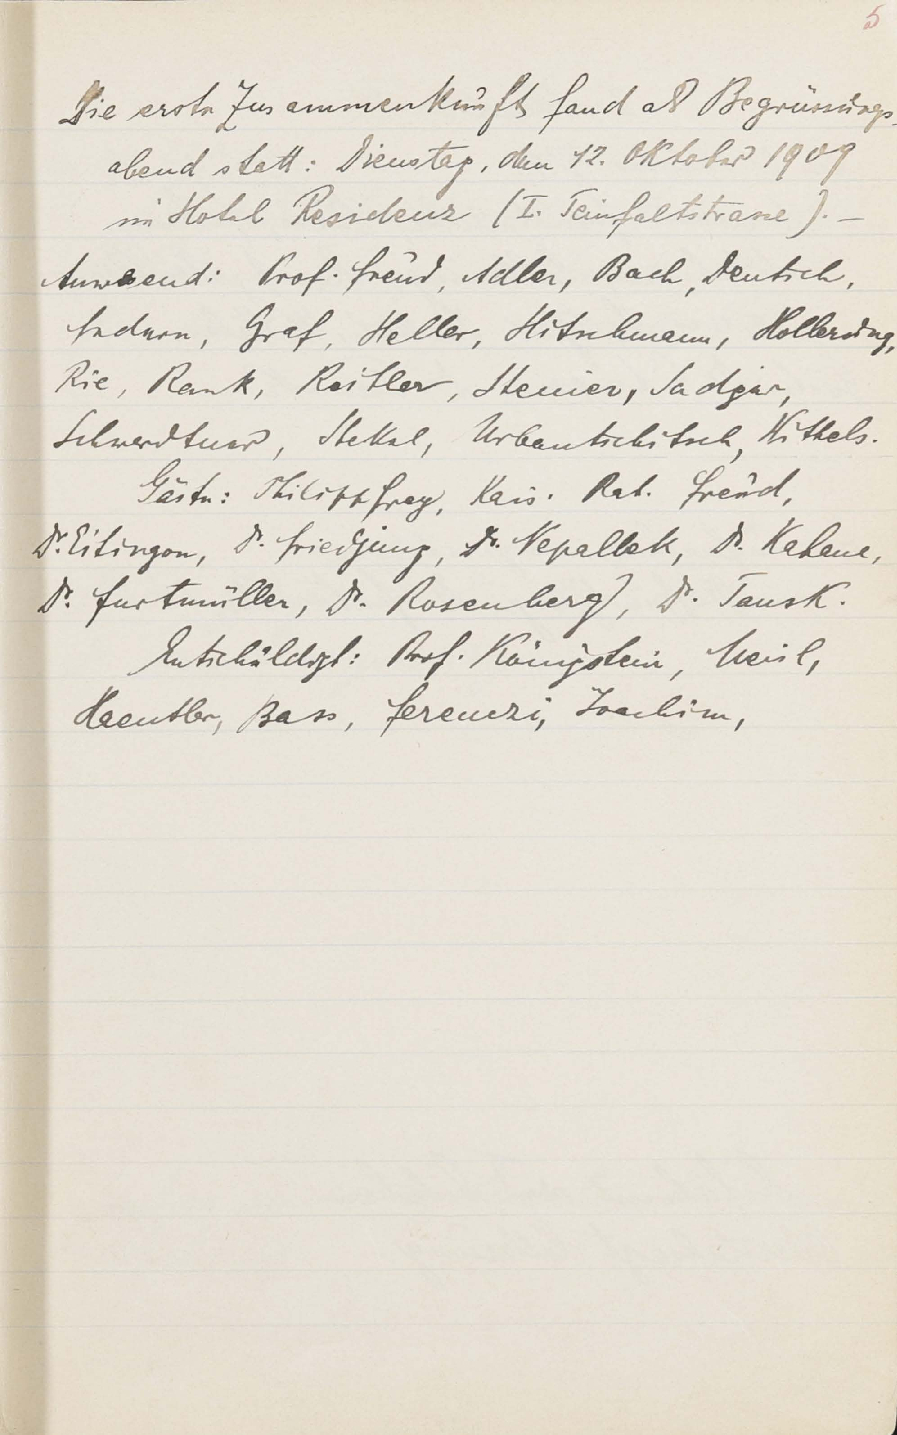 5
Die erste Zusammenkunft fand als Begrüssungs-
abend statt: Dienstag, den 12. Oktober 1909
im Hotel Residenz (I. Teinfaltstrasse). —
Anwesend: Prof. Freud, Adler, Bach, Deutsch,
Federn, Graf, Heller, Hitschmann, Hollerung,
Rie, Rank, Reitler, Steiner, Sadger,
Schwerdtner, Stekel, Urbantschitsch, Wittels.
Gäste: Philipp Frey, Kais. Rat. Freud,
Dr. Eitingon, Dr. Friedjung, Dr. Nepallek, Dr. Kahane,
Dr. Furtmüller, Dr. Rosenberg, Dr. Tausk.
Entschuldigt: Prof. Königstein, Meisl,
Haeutler, Bass, Ferenczi, Joachim,